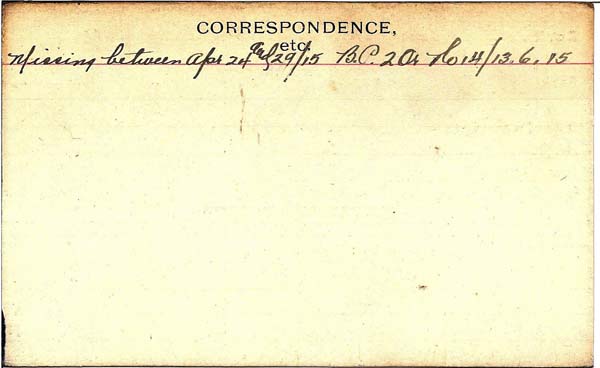 CORRESPONDENCE,
etc.
Missing between Apr 24 and 29/15 B.C. 2 Or No 14/13.6.15